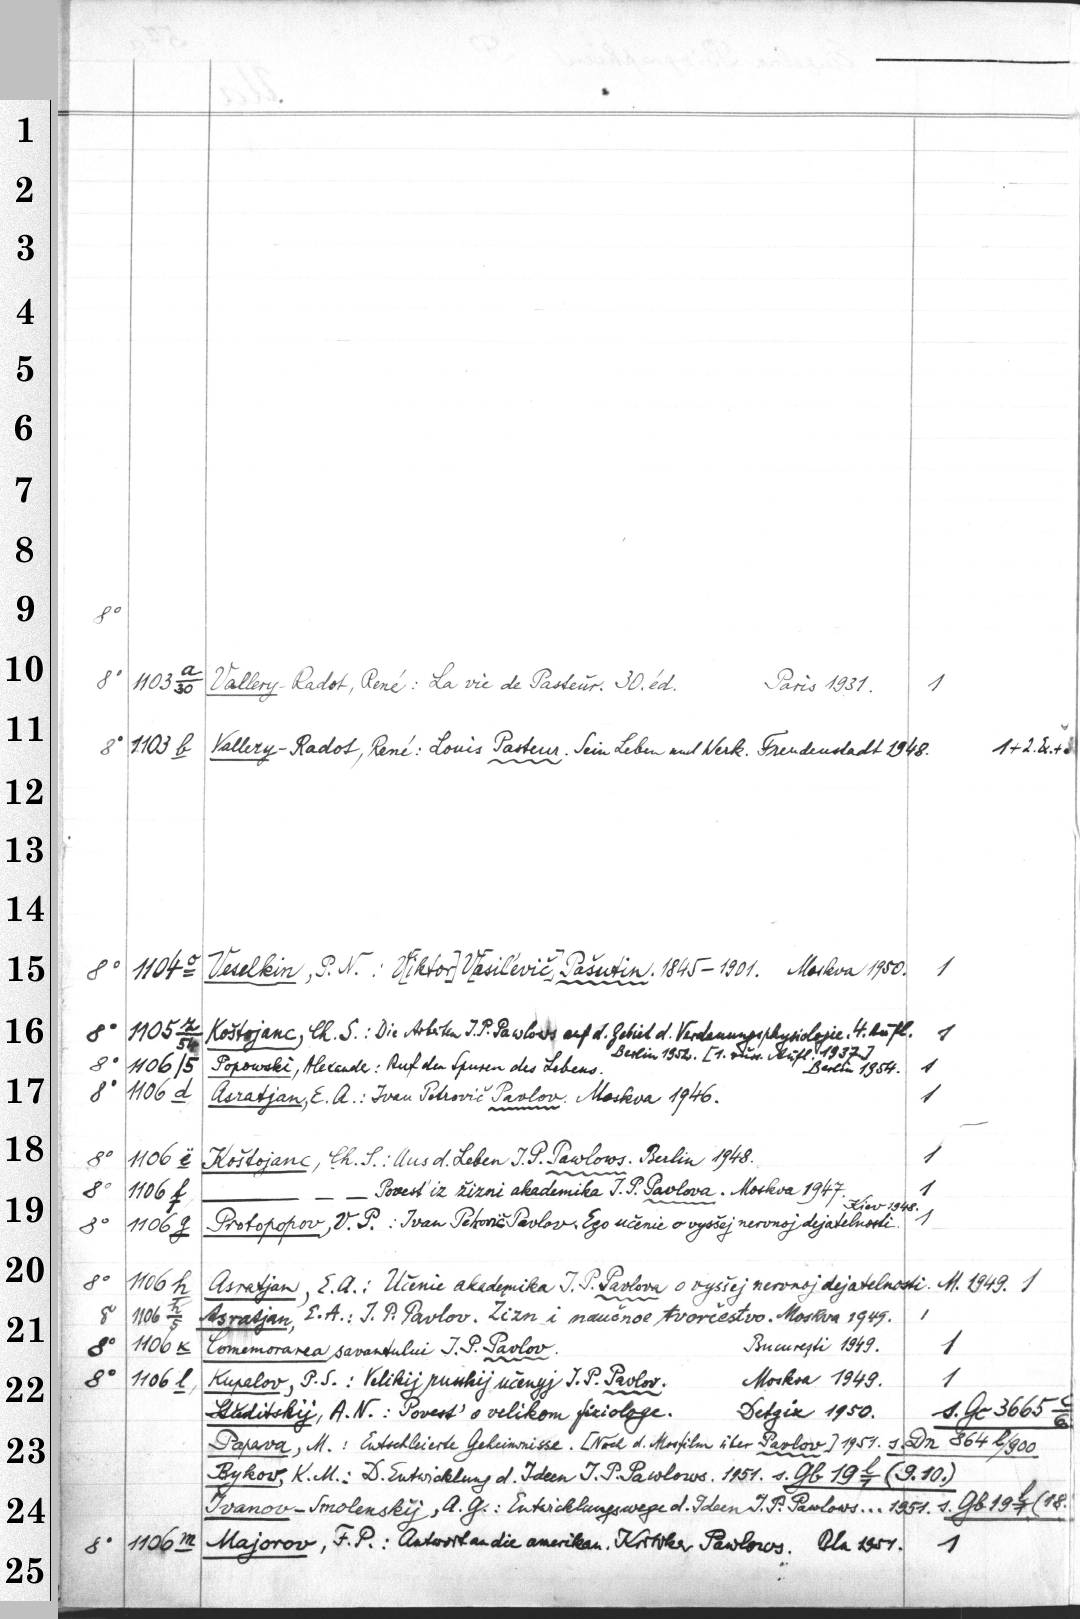 1
2
3
4
5
6
7
8
9
8°
10
8° 1103 a/30 Vallery-Radot, René: La vie de Pasteur. 30. éd. Paris 1931. 1
11
8° 1103 b Vallery-Radot, René: Louis Pasteur. Sein Leben und Werk. Freudenstadt 1948. 1+2.Ex.+
12
13
14
15
8° 1104 o Veselkin, P. N. : V[iktor] V[asil'evič] Pašutin. 1845-1901. Moskva 1950. 1
16
8° 1105 z/54 Koštojanc, Ch. S.: Die Arbeiten I. P. Pawlows auf d. Gebiet d. Verdauungsphysiologie. 4. Aufl. 1
Berlin 1952. [1. russ. Aufl. 1937]
8° 1106/5 Popowski, Alexander: Auf den Spuren des Lebens. Berlin 1954. 1
17
8° 1106 d Asratjan, E. A.: Ivan Petrovič Pavlov. Moskva 1946. 1
18
8° 1106 e Koštojanc, Ch. S.: Aus d. Leben I. P. Pawlows. Berlin 1948. 1
8° 1106 f — — — Povest' iz žizni akademika I. P. Pavlova. Moskva 1947. 1
19
Kiev 1948.
8° 1106 g Protopopov, V. P. : Ivan Petrovič Pavlov. Ego učenie o vysšej nervnoj dejatelnosti. 1
20
8° 1106 h Asratjan, E. A.: Učenie akademika I. P. Pavlova o vysšej nervnoj dejatelnosti. M. 1949. 1
8° 1106 h/5 Asratjan, E. A.: I. P. Pavlov. Zizn i naučnoe tvorčestvo. Moskva 1949. 1
21
8° 1106 k Comemorarea savantului I. P. Pavlov. Bucureşti 1949. 1
22
8° 1106 l Kupalov, P. S. : Velikij russkij učenyj I. P. Pavlov. Moskva 1949. 1
Studitskij, A. N. : Povest' o velikom fiziologe. Detgiz 1950. s. Gc 3665 c/6
23
Papava, M. : Entschleierte Geheimnisse. [Nach d. Mosfilm über Pavlov] 1951. s. Dn 864 l/900
Bykov, K. M.: D. Entwicklung d. Ideen I. P. Pawlows. 1951. s. Gb 19 f/7 (9. 10.)
24
Ivanov-Smolenskij, A. G.: Entwicklungswege d. Ideen I. P. Pawlows... 1951. s. Gb 19 f/7 (18.
8° 1106 m Majorov, F. P. : Antwort an die amerikan. Kritiker Pawlows. Bln 1951. 1
25